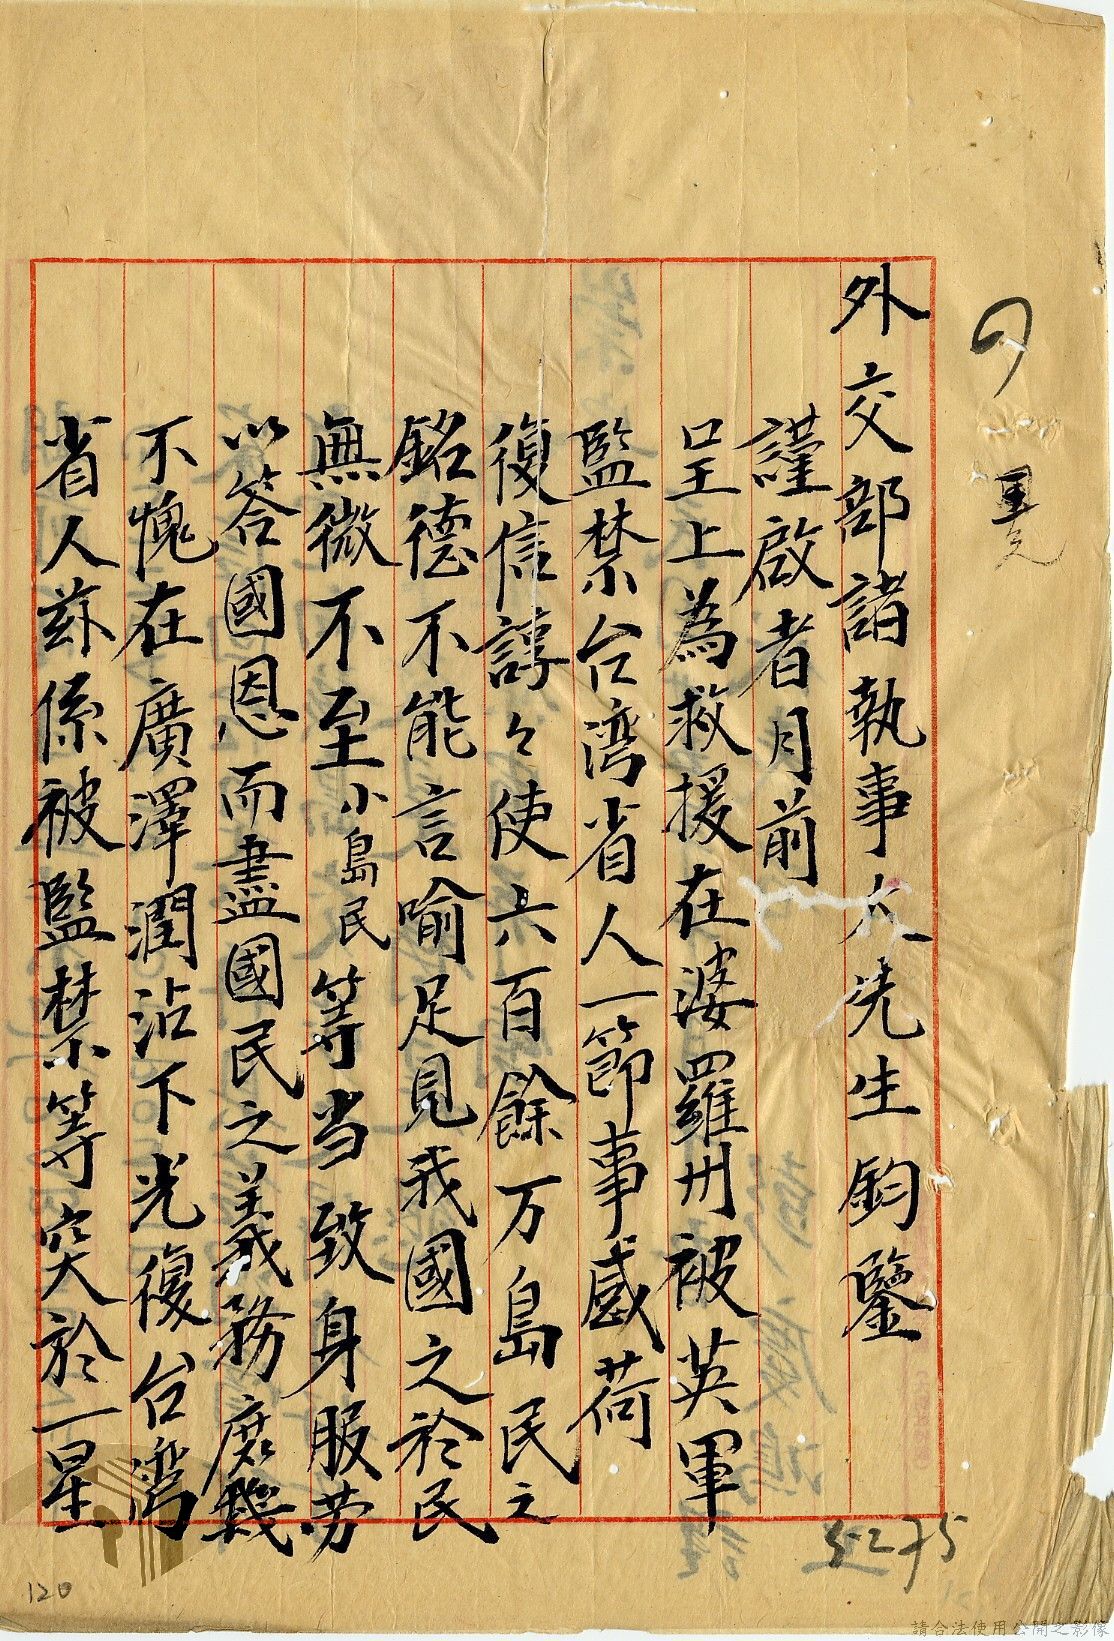 外交部諸執事大先生鈞鑒
謹啟者月前
呈上為救援在婆羅州被英軍
監禁台湾省人一節事感荷
復信諄々使六百餘万島民之
銘德不能言喻足見我國之於民
無微不至小島民等当致身服劳
以答國恩而盡國民之義務庶幾
不愧在廣澤潤沾下光復台湾
省人茲係被監禁等突於一星
120
請合法使用公開之影像